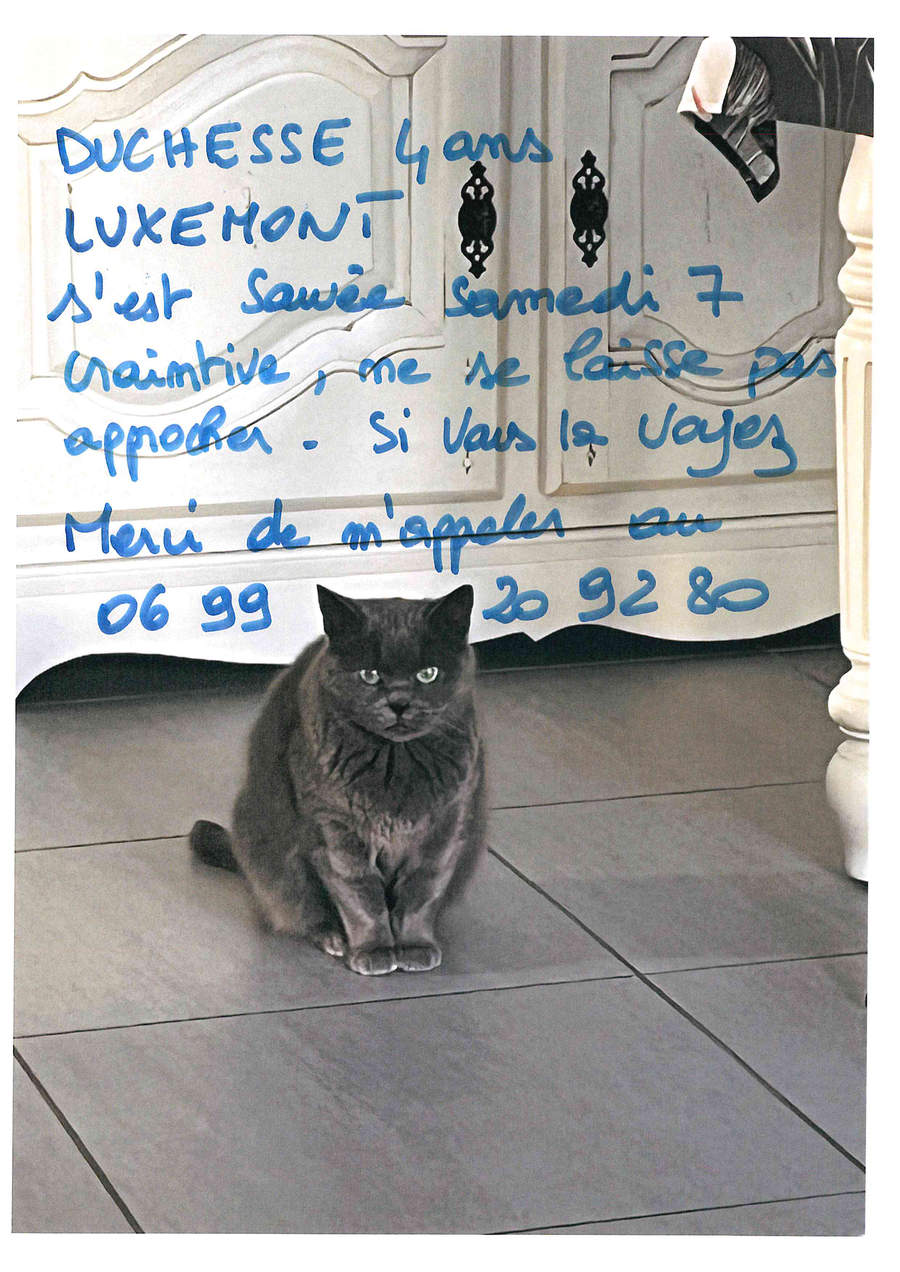 DUCHESSE 4 ans
LUXEMONT
s'est sauvée samedi 7
craintive, ne se laisse pas
approcher. Si vous la voyez
Merci de m'appeler au
06 99 20 92 80